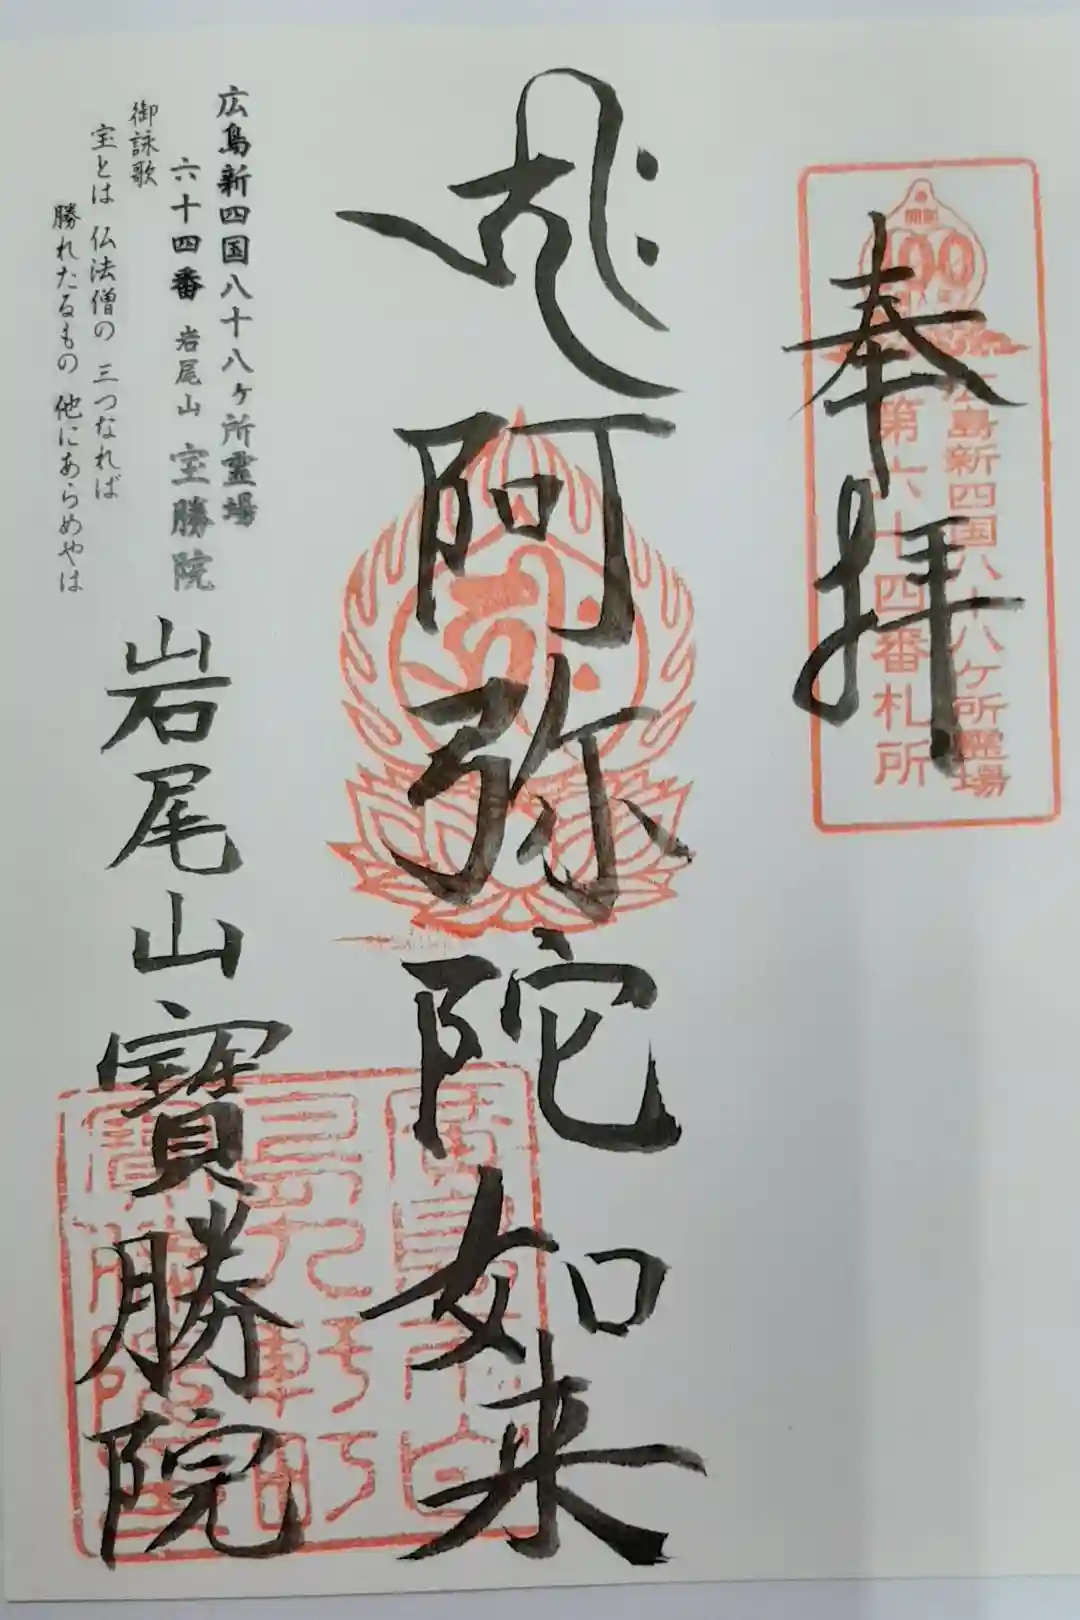 奉拝
広島新四国八十八ヶ所霊場
第六十四番札所
阿弥陀如来
岩尾山寶勝院
広島新四国八十八ヶ所霊場
六十四番 岩尾山 宝勝院
御詠歌
宝とは 仏法僧の 三つなれば
勝れたるもの 他にあらめやは